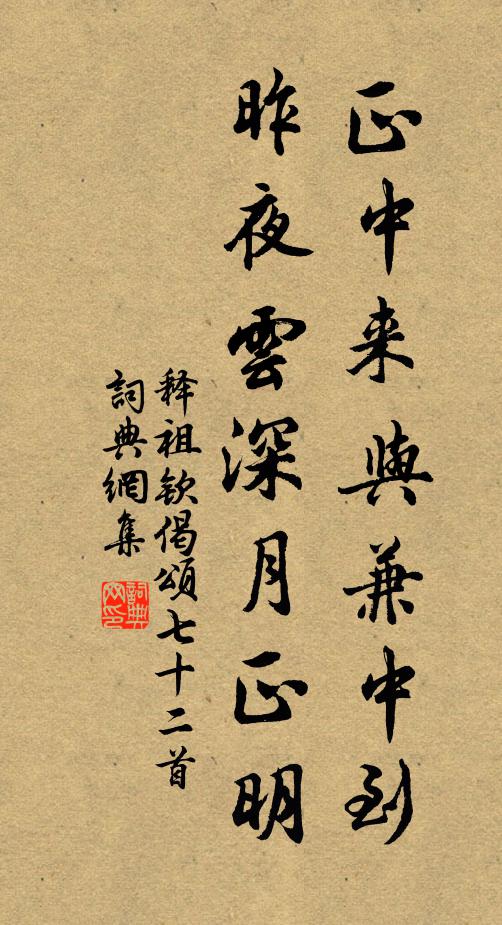 正中来與兼中到
昨夜雲深月正明
释祖钦偈頌七十二首
詞典網集
詞典網印